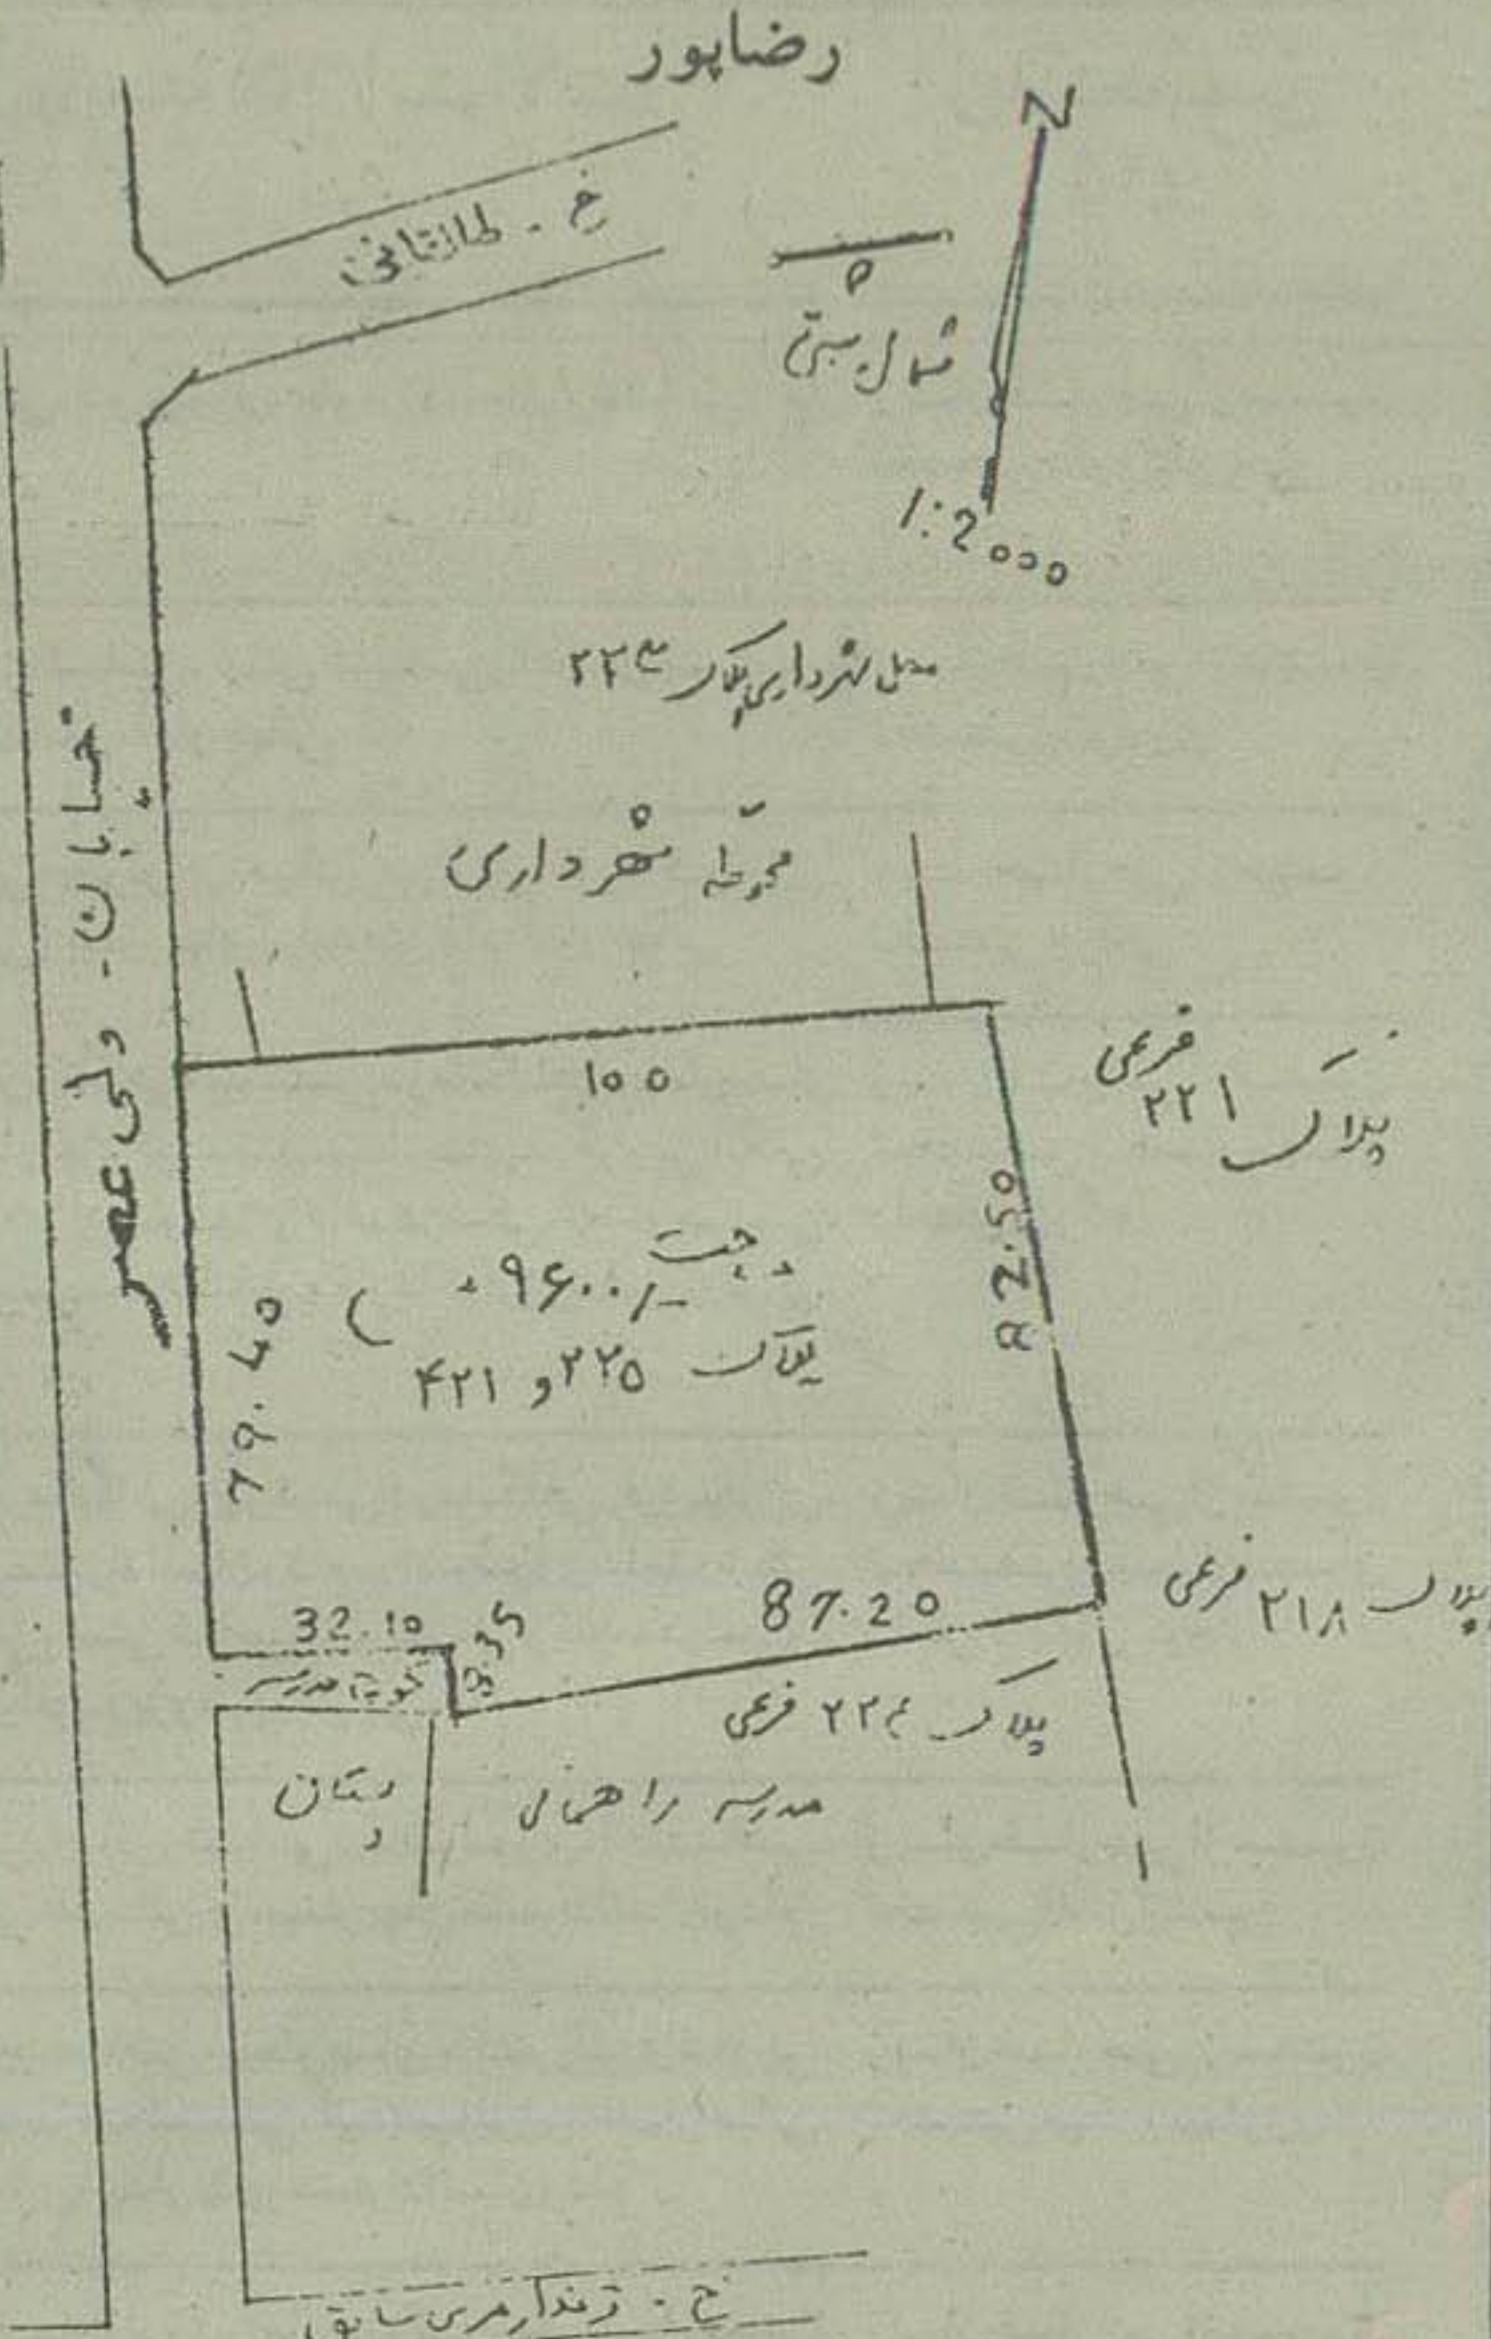 رضاپور
N
خ . طالقانی
شمال نسبی
1:2000
محل شهرداری پلاک ۲۲۳
محوطه شهرداری
خیابان - ولی عصر
100
پلاک ۲۲۱ فرعی
82.50
۹۶۰۰
پلاک ۲۲۵ و ۴۲۱
79.40
32.10
87.20
پلاک ۲۱۸ فرعی
کوچه مدرسه
پلاک ۲۲۴ فرعی
دبستان
مدرسه راهنمائی
خ . ژاندارمری سابق